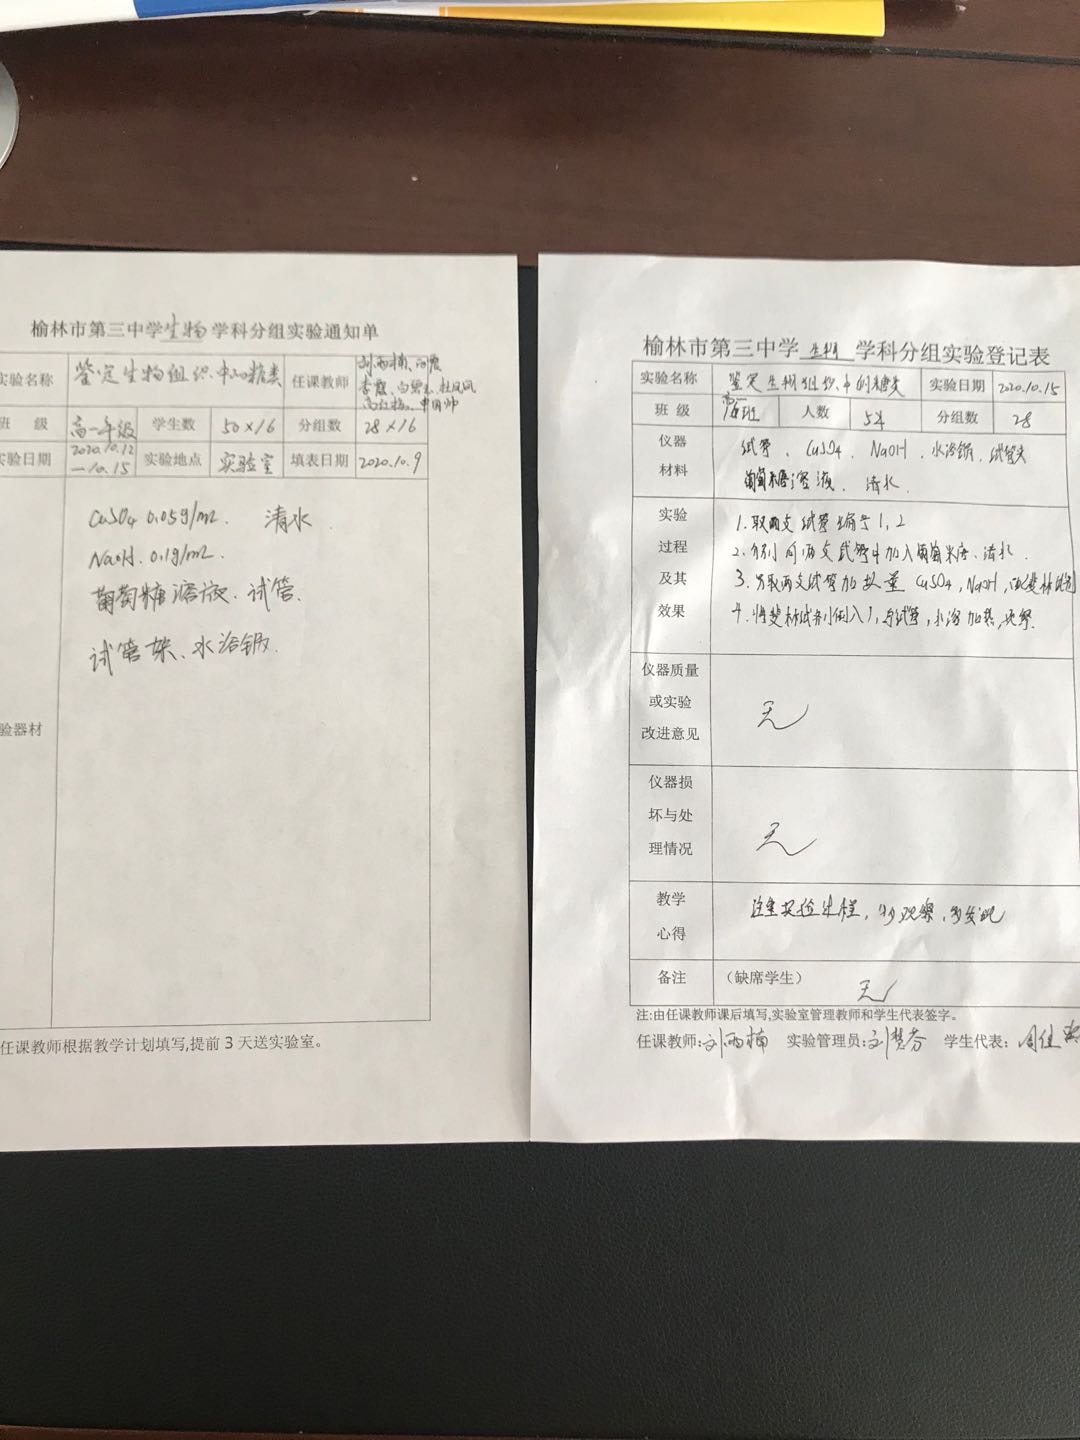 榆林市第三中学生物学科分组实验通知单
实验名称 鉴定生物组织中的糖类 任课教师 刘雨楠、
李霞、
班 级 高一年级 学生数 50×16 分组数 28×16
实验日期 2020.10.12
—10.15 实验地点 实验室 填表日期 2020.10.9
CuSO4 0.05g/mL. 清水.
NaOH. 0.1g/mL.
葡萄糖溶液. 试管.
试管架、水浴锅.
验器材
任课教师根据教学计划填写,提前3天送实验室。
榆林市第三中学 生物 学科分组实验登记表
实验名称 鉴定生物组织中的糖类 实验日期 2020.10.15
班 级 人数 分组数 28
仪器
材料
试管、CuSO4、NaOH、水浴锅、试管夹
葡萄糖溶液、清水.
实验
过程
及其
效果
1.取两支试管编号1,2
2.分别向两支试管中加入葡萄糖、清水.
3.另取两支试管加适量CuSO4,NaOH,配斐林试剂
4.将斐林试剂倒入1,2号试管,水浴加热,观察.
仪器质量
或实验
改进意见
无
仪器损
坏与处
理情况
无
教学
心得
注重实验过程,多观察,多发现
备注 (缺席学生) 无
注:由任课教师课后填写,实验室管理教师和学生代表签字。
任课教师:刘雨楠 实验管理员:刘慧芬 学生代表:周佳